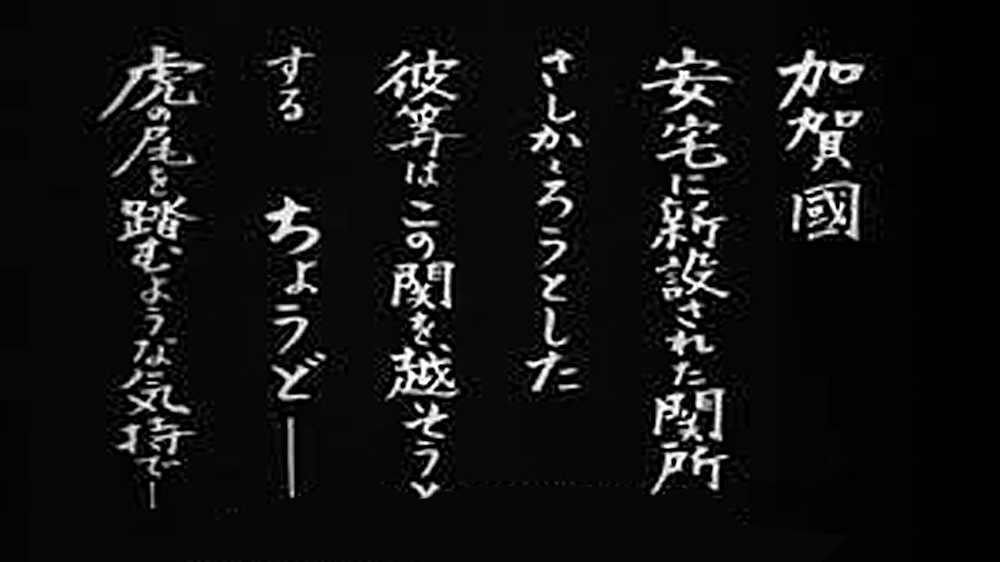 加賀國
安宅に新設された関所
さしかゝろうとした
彼等はこの関を越そうと
する　ちょうど―
虎の尾を踏むような気持で―